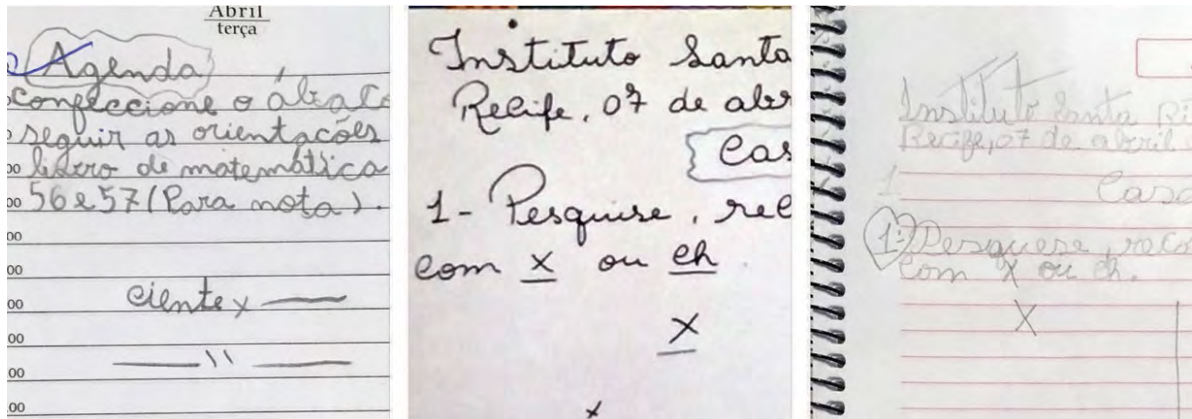 Abril
terça
Agenda
Confeccione o ábaco
seguir as orientações
livro de matemática
56 e 57 (Para nota).
ciente x
Instituto Santa
Recife, 07 de abr
Cas
1- Pesquise, rec
com x ou ch
x
x
Instituto Santa Ri
Recife, 07 de abril
1
Casa
1- Pesquese, reco
com x ou ch.
X
00
00
00
00
00
00
00
00